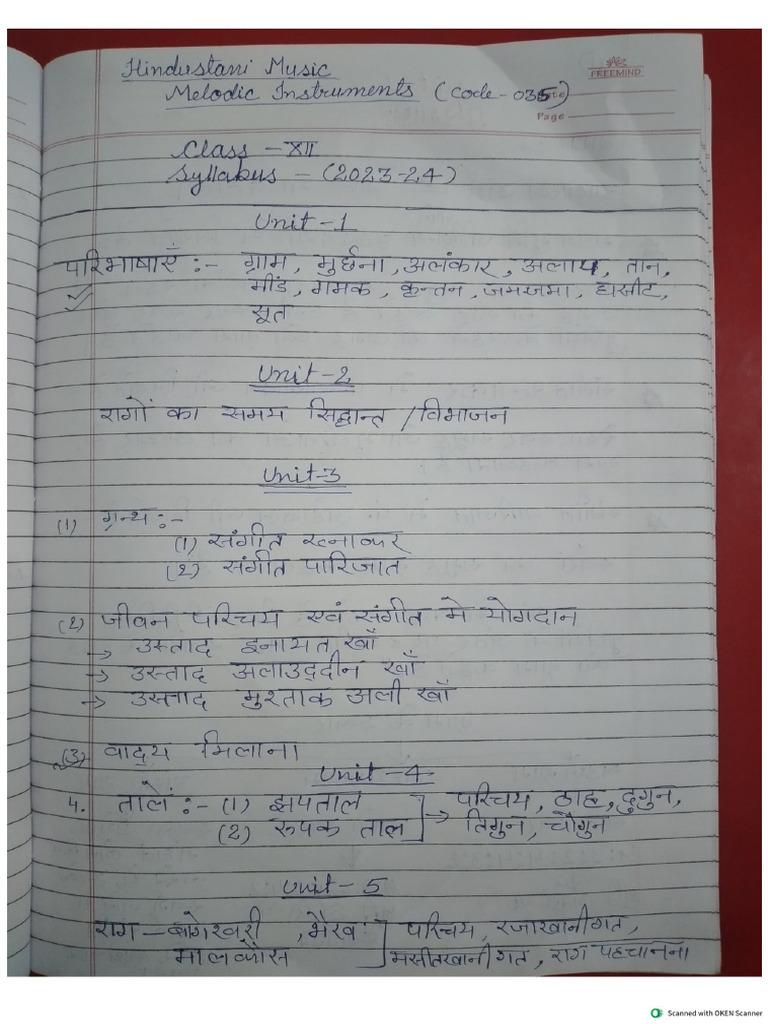 Hindustani Music
Melodic Instruments (Code - 035)
FREEMIND
Page
Class - XII
Syllabus - (2023-24)
Unit - 1
परिभाषाएँ :- ग्राम, मुर्छना, अलंकार, अलाप, तान,
मींड, गमक, कृन्तन, जमजमा, घसीट,
सूत
Unit - 2
रागों का समय सिद्धान्त / विभाजन
Unit-3
(1) ग्रन्थ :-
(1) संगीत रत्नाकर
(2) संगीत पारिजात
(2) जीवन परिचय एवं संगीत मे योगदान
→ उस्ताद इनायत खाँ
→ उस्ताद अलाउद्दीन खाँ
→ उस्ताद मुश्ताक अली खाँ
(3) वाद्य मिलाना
Unit - 4
4. तालें :- (1) झपताल → परिचय, ठाह, दुगुन,
(2) रुपक ताल तिगुन, चौगुन
Unit - 5
राग — बागेश्वरी, भैरव परिचय, रजाखानीगत,
मालकौस मसीतखानीगत, राग पहचानना
Scanned with OKEN Scanner